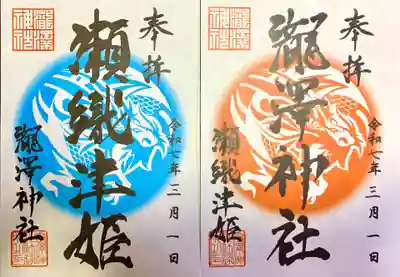 奉拝
瀬織津姫
令和七年三月一日
瀧澤神社
瀧澤神社
奉拝
瀧澤神社
令和七年三月一日
瀬織津姫
瀧澤神社